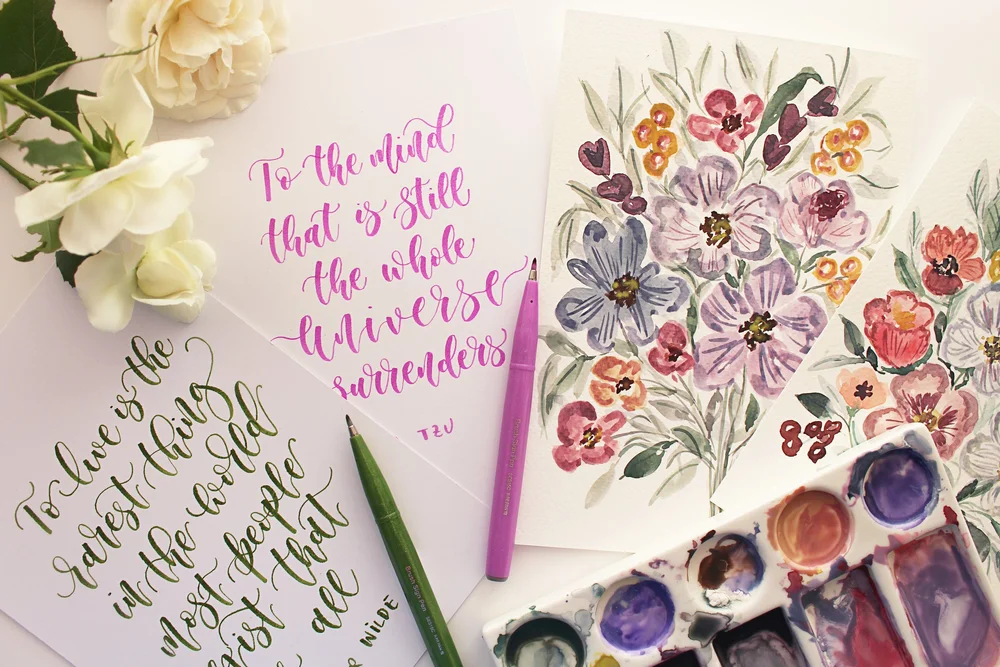 To the mind
that is still
the whole
universe
surrenders
TZU
To live is the
rarest thing
in the world
most people
that
all
WILDE
Brush Sign Pen